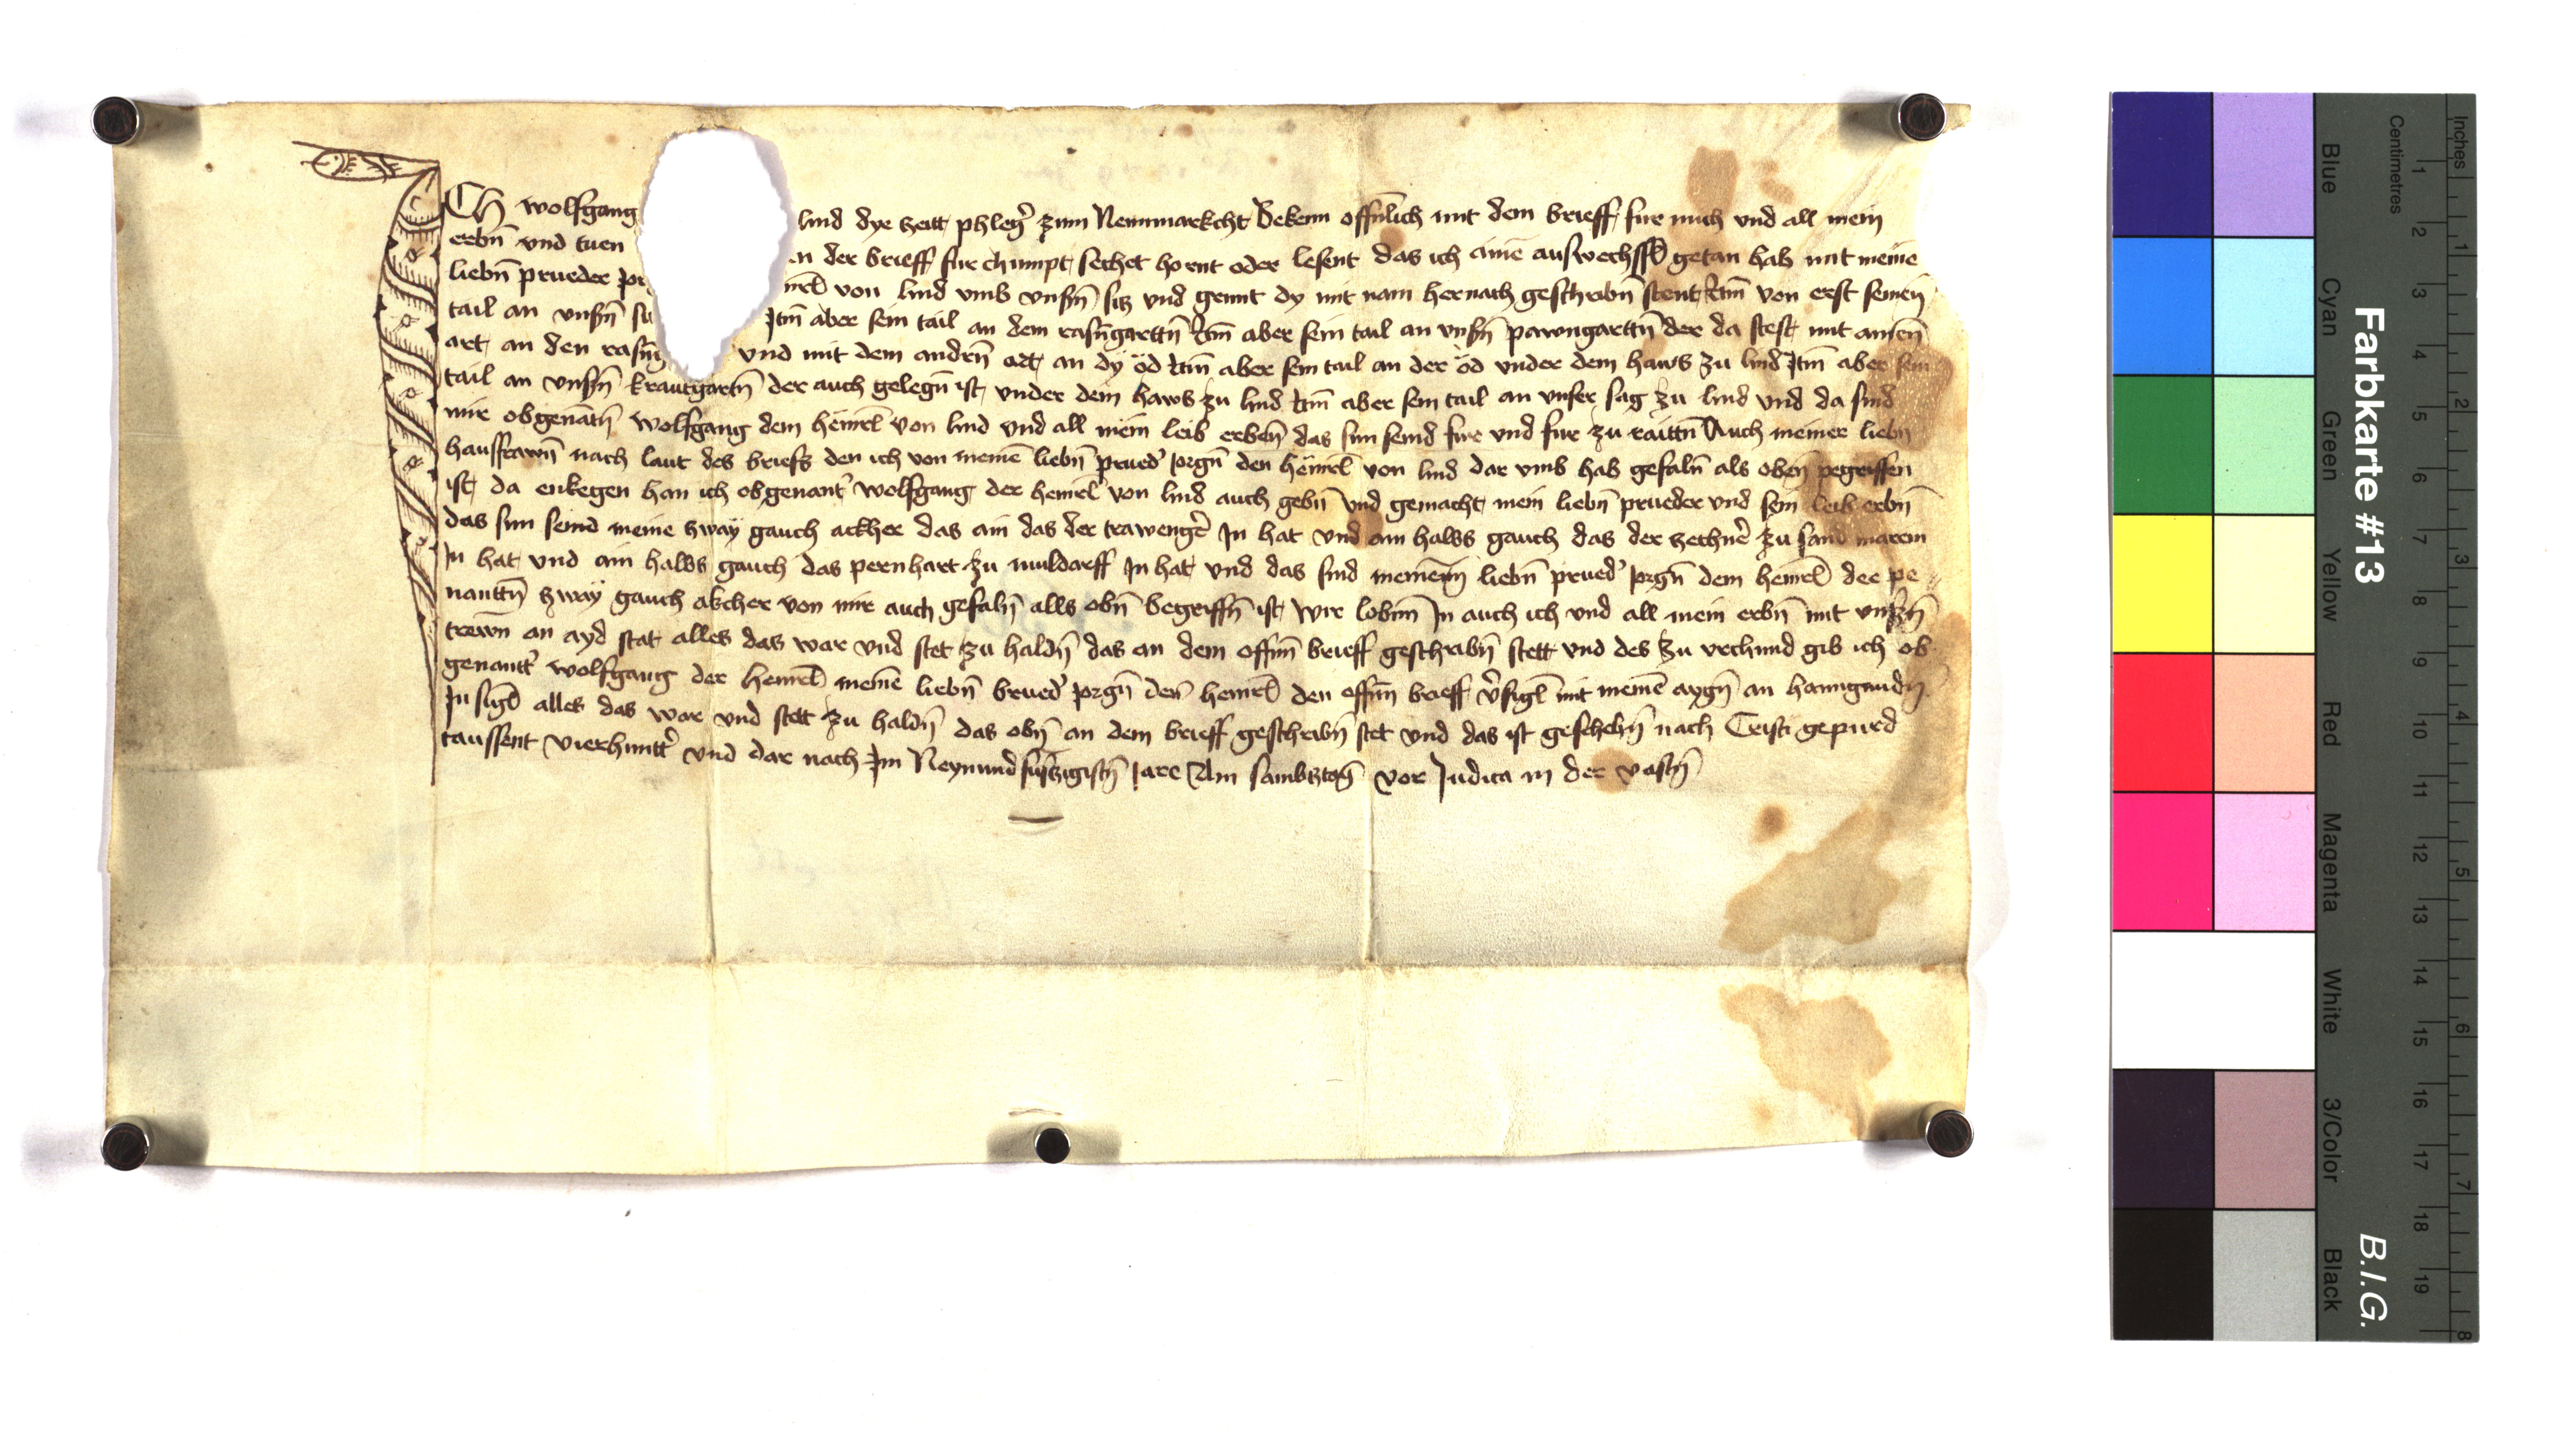 ICh wolfgang lind dye zeitt phleger zum Newnmarckcht Bekenn offnlich mit dem brieff fur mich vnd all mein
erbn vnd tuen en der brieff fur chumpt sechet hornt oder lesent das ich aine auswechssl getan hab mit meine
liebn prueder von lind vmb vnsrn sitz vnd grunt dy mit nam hernach geschribn stent Itm von erst seinen
tail an vnsrn Itm aber sein tail an dem rasngarttn Itm aber sein tail an vnsrn pawngarttn der da stest mit ainen
art an den vnd mit dem andern ort an dy öd Itm aber sein tail an der öd vnder dem haws zu lind Itm aber sein
tail an vnsrn krautgartn der auch gelegn ist vnder dem haws zu lind Itm aber sein tail an vnser sag zu lind vnd da sind
mir obgenatn wolfgang dem heinrel von lind vnd all mein leib erben das sun seind fur vnd fur zu raittn Auch meiner liebn
hausfrawn nach laut des briefs den ich von meine liebn prued Jorgn den heinrel von lind dar vmb hab gefaln als oben pegriffen
ist da enkegen han ich obgenant wolfgang der heinrel von lind auch gebn vnd gemacht mein liebn prueder vnd sein leib erbn
das sun seind meine zway gauch ackher das ain das der trawenger In hat vnd ain halbs gauch das der zechner zu sand marein
In hat vnd ain halbs gauch das pernhart zu muldorff In hat vnd das sind meinem liebn prued Jorgn dem heinrel der pe
nanttn zway gauch akcher von mir auch gefaln alls obn begriffn ist wir lobnn In auch ich vnd all mein erbn mit vnsrn
trewn an ayd stat alles das war vnd stet zu haldn das an dem offnn brieff geschribn stett vnd des zu vrchund gib ich ob
genantt wolfgang der heinrel meine liebn brued Jorgn den heinrel den offnn brieff vsigl mit meine aygn an hanngundn
In sigl alles das war vnd stett zu haldn das obn an dem brieff geschribn stet vnd das ist geschehn nach Cristi gepurd
taussent vierhuntt vnd dar nach Im Neynundfuftzigistn Jare Am sambtztag vor Judica in der vastn
Inches
Centimetres
1 2 3 4 5 6 7 8 9 10 11 12 13 14 15 16 17 18 19
1 2 3 4 5 6 7 8
Blue Cyan Green Yellow Red Magenta White 3/Color Black
Farbkarte #13
B.I.G.